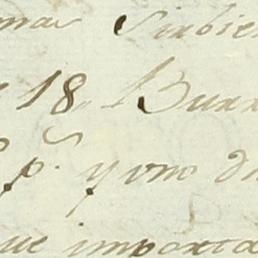 mas Sirbie
18, Burr
p. y uno d
que importa